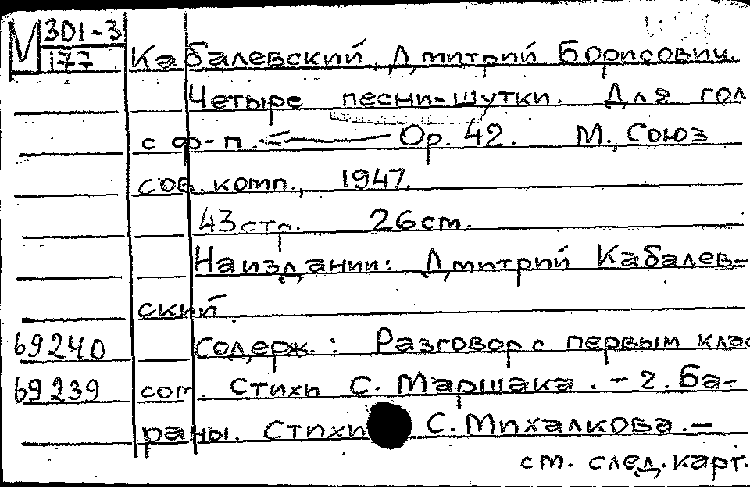 М 301-3
177
Кабалевский, Дмитрий Борисович.
Четыре песни-шутки. Для гол
с ф-п. Op. 42. М., Союз
сов. комп., 1947.
43 стр. 26 см.
На издании: Дмитрий Кабалев-
ский.
69240 Содерж.: Разговор с первым клас
69239 сом. Стихи С. Маршака. - 2. Ба-
раны. Стихи С. Михалкова. -
см. след. карт.